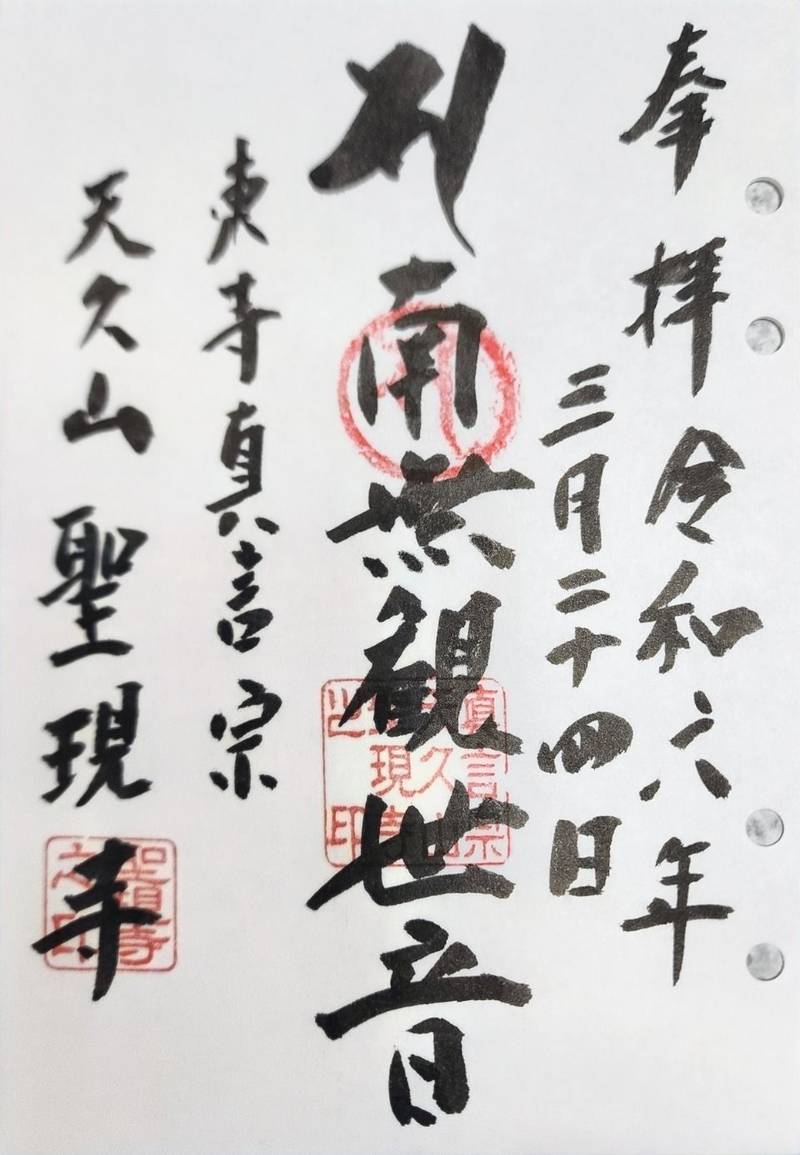 奉拝 令和六年
三月二十四日
南無観世音
東寺真言宗
天久山 聖現寺
真言宗
天久山
聖現寺
之印
聖現寺
之印